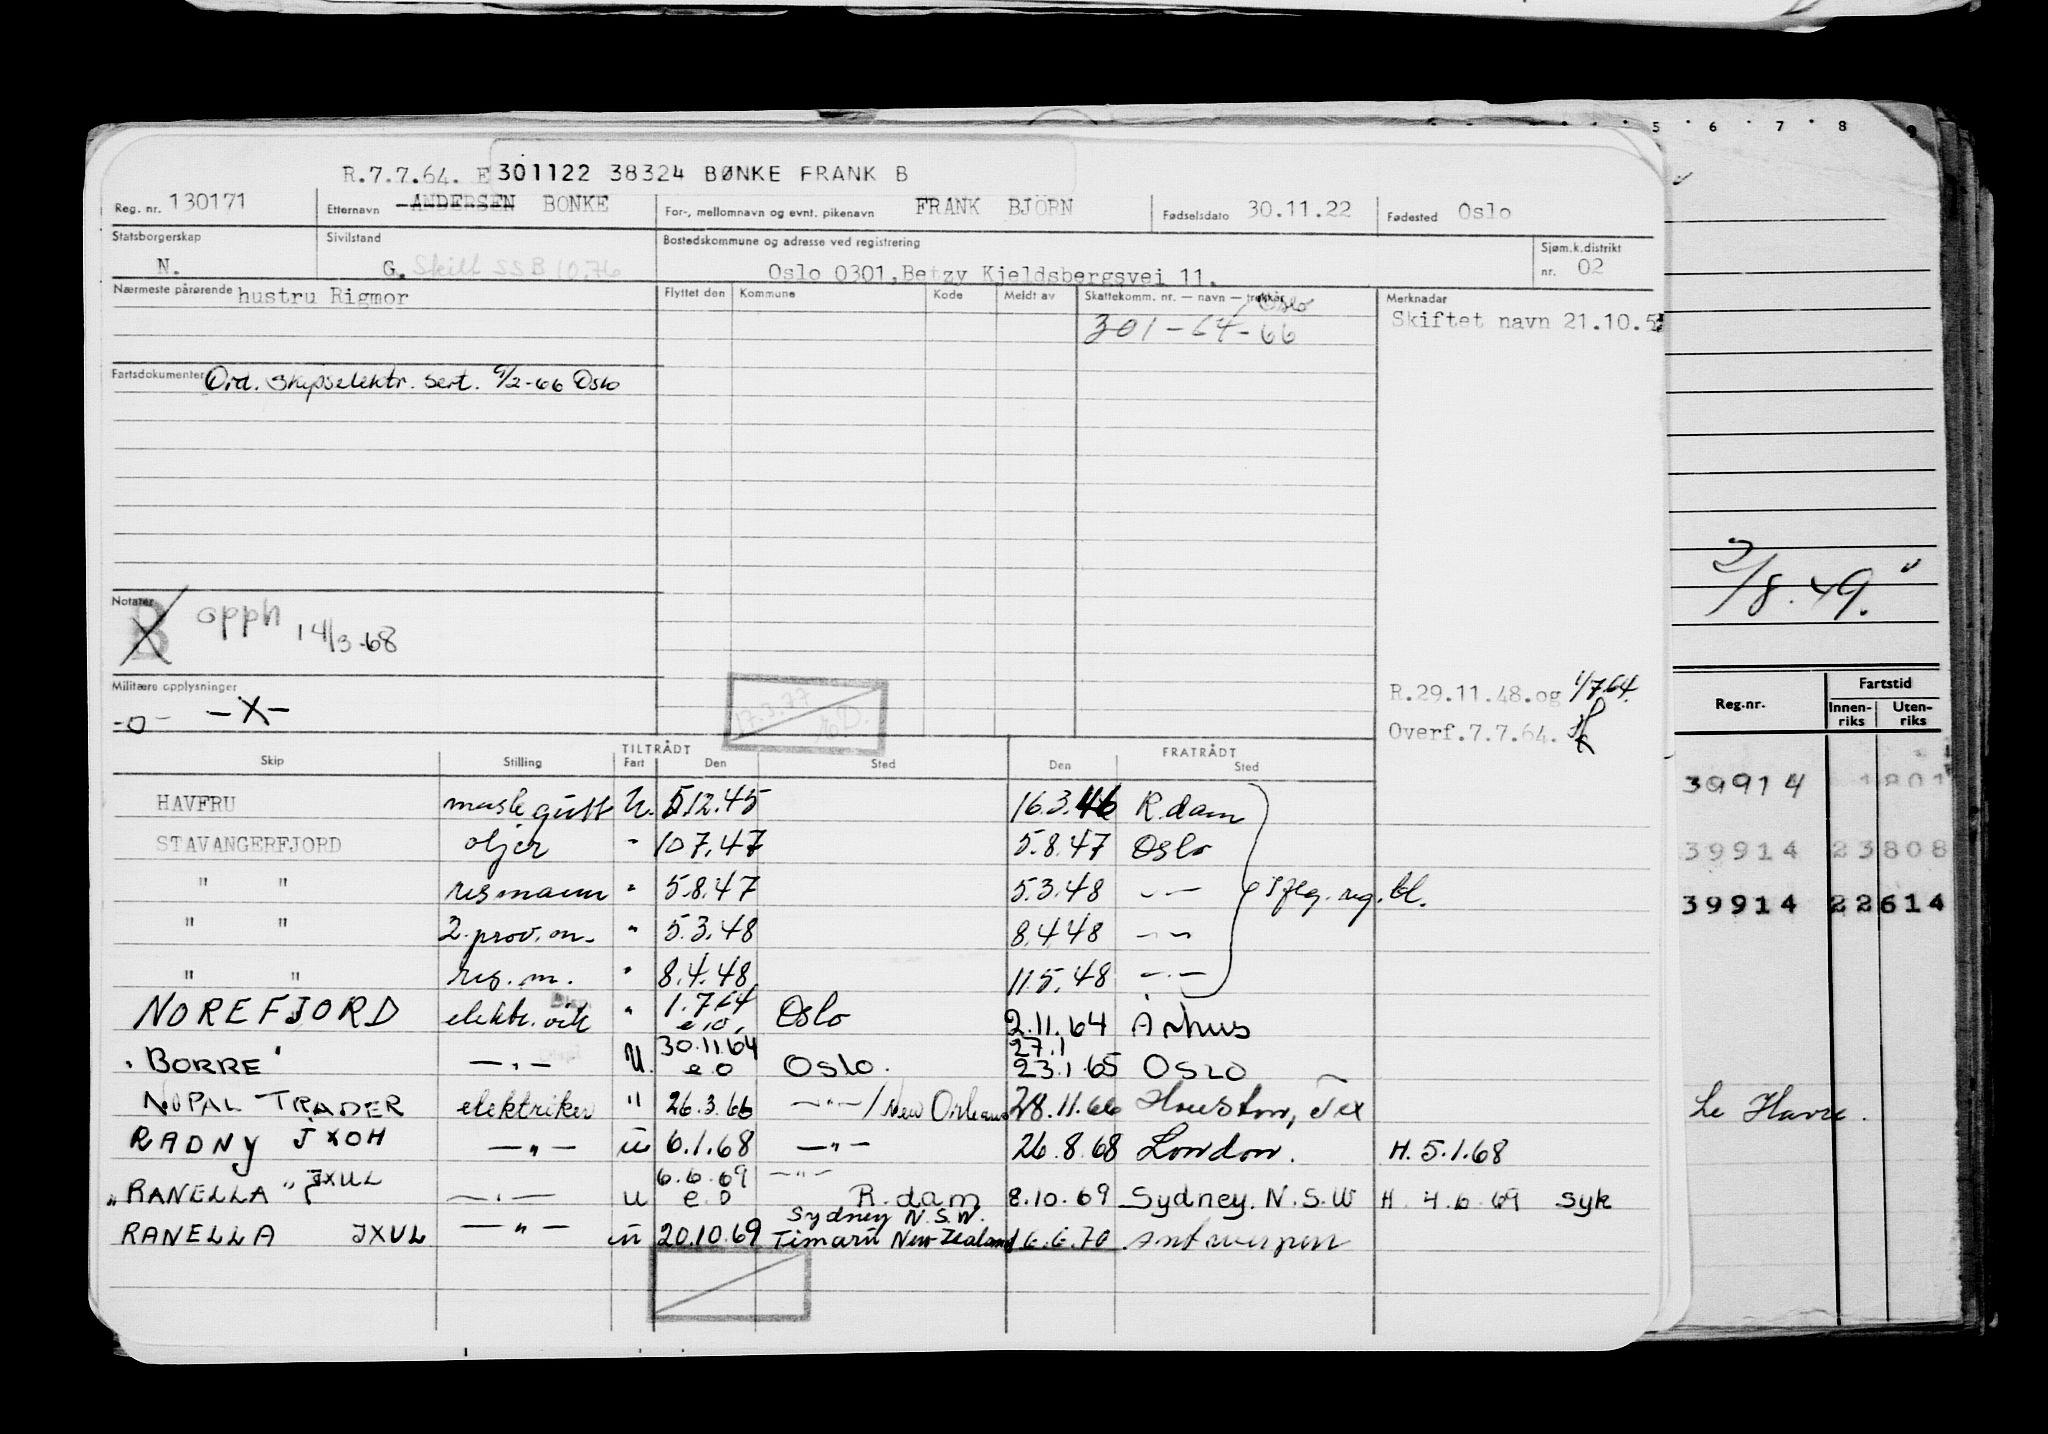 R.7.7.64. E 301122 38324 BØNKE FRANK B
Reg. nr. 130171 Etternavn ANDERSEN BONKE For-, mellomnavn og evnt. pikenavn FRANK BJÖRN Fødselsdato 30.11.22 Fødested Oslo
Statsborgerskap Sivilstand Bostedskommune og adresse ved registrering Sjøm.k.distrikt
N. G. Skilt SSB 10.76 Oslo 0301, Betzy Kjeldsbergsvei 11. nr. 02
Nærmeste pårørende hustru Rigmor Flyttet den Kommune Kode Meldt av Skattekomm. nr. — navn — trekkår Merknadar
Oslo
301-64-66 Skiftet navn 21.10.5
Fartsdokumenter Ord. skipselektr. sert. 9/2-66 Oslo
Notater
B opph 14/3-68
Militære opplysninger
-o- -X-
17.3.77
R.29.11.48.og 1/7.64.
Overf.7.7.64.
TILTRÅDT FRATRÅDT
Skip Stilling Fart Den Sted Den Sted
HAVFRU U. 5.12.45 16.3.46 R.dam
STAVANGERFJORD oljer " 10.7.47 5.8.47 Oslo
" " resmann " 5.8.47 5.3.48 — —
" " 2. prov.m. " 5.3.48 8.4.48 — —
" " res.m. " 8.4.48 11.5.48 —.—
reg. bl.
NOREFJORD elektr. " 1.7.64 e.o. Oslo 2.11.64 Århus
"BORRE" —.— U. 30.11.64 e.o Oslo. 27.1 23.1.65 OSLO
NOPAL TRADER elektriker " 26.3.66 —"—/New Orleans 28.11.66 Houston, Tex
RADNY JXOH —"— u 6.1.68 —"— 26.8.68 London. H. 5.1.68
"RANELLA" JXUL —.— u 6.6.69 e.o —"— R.dam 8.10.69 Sydney. N.S.W H 4.6.69 syk
RANELLA JXUL —"— u 20.10.69 Sydney N.S.W. Timaru New Zealand 6.6.70 Antwerpen
5 6 7 8 9
2/8.49.
Reg.nr. Fartstid
Innen-riks Uten-riks
39914 1801
39914 23808
39914 22614
Le Havre.